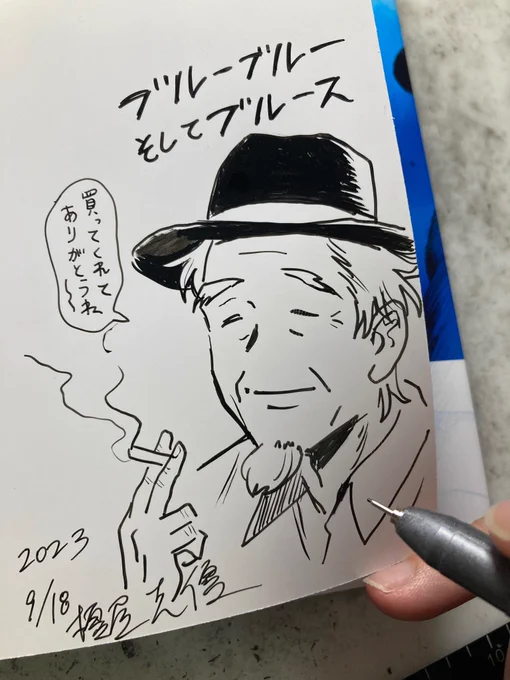 ブルーブルー
そしてブルース
買ってくれて
ありがとうね〜
2023
9/18
克優
10